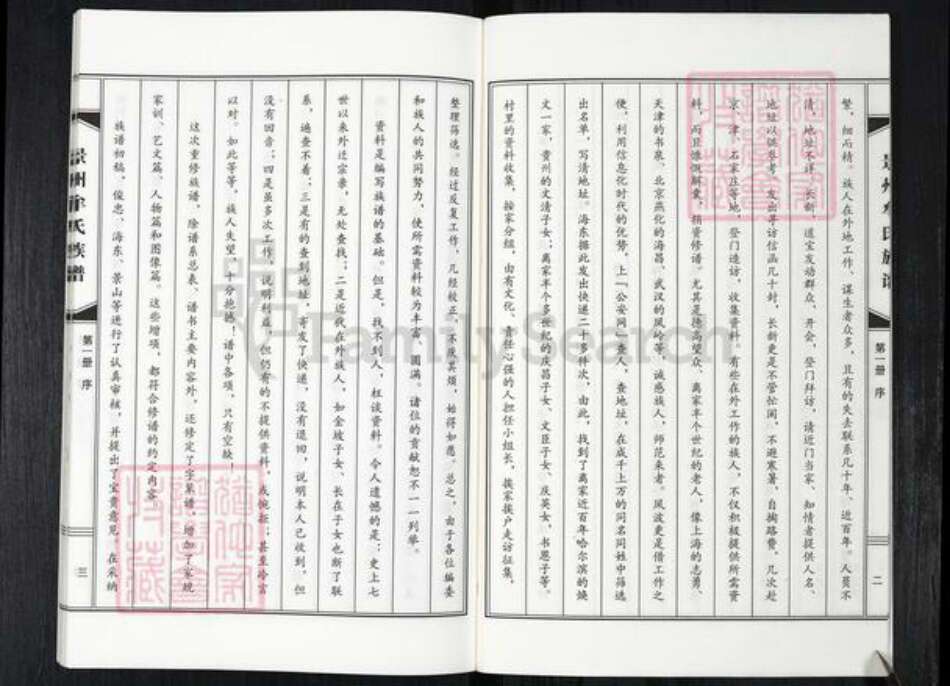 繁，细而精。族人在外地工作、谋生者众多，且有的失去联系几十年、近百年。人员不
清，地址不详，长新、道宝发动群众，开会，登门拜访，请近门当家、知情者提供人名、
地址以供参考，发出寻访信函几十封，长新更是不管忙闲，不避寒暑，自掏路费，几次赴
京、津、石家庄等地，登门造访，收集资料。有些在外工作的族人，不仅积极提供所需资
料，而且慷慨解囊，捐资修谱。尤其是德高望众、离家半个世纪的老人，像上海的志勇、
天津的书泉、北京燕化的海昌、武汉的凤岭等，诚感族人，师范来者。凤波更是借工作之
便，利用信息化时代的优势，上「公安网」查人，查地址，在成千上万的同名同姓中筛选
出名单，写清地址。海东据此发出快递二十多件次，由此，找到了离家近百年哈尔滨的焕
文一家，贵州的文清子女；离家半个多世纪的庆昌子女、文臣子女、庆英女，书恩子等。
村里的资料收集，按家分组，由有文化、责任心强的人担任小组长，挨家挨户走访征集，
第一册 序
二
整理筛选。经过反复工作，几经校正，不厌其烦，始得如愿。总之，由于各位编委
和族人的共同努力，使所需资料较为丰富、圆满。诸位的贡献恕不一一列举。
资料是编写族谱的基础。但是，找不到人，枉谈资料。令人遗憾的是：一是史上七
世以来外迁宗亲，无处查找；二是近代在外族人，如金坡子女、长在子女也断了联
系，遍查不着；三是有的查到地址，寄发了快递，没有退回，说明本人已收到，但
没有回音；四是虽多次工作，说明利益，但仍有的不提供资料，或惋拒；甚至冷言
以对。如此等等，族人失望，十分抱憾！谱中各项，只有空缺！
这次重修族谱，除谱系总表、谱书主要内容外，还修定了字辈谱，增加了家规
家训、艺文篇、人物篇和图像篇。这些增项，都符合修谱的约定内容。
族谱初稿，俊忠、海东、景山等进行了认真审核，并提出了宝贵意见。在采纳
景州徐氏族谱
第一册 序
三
FamilySearch